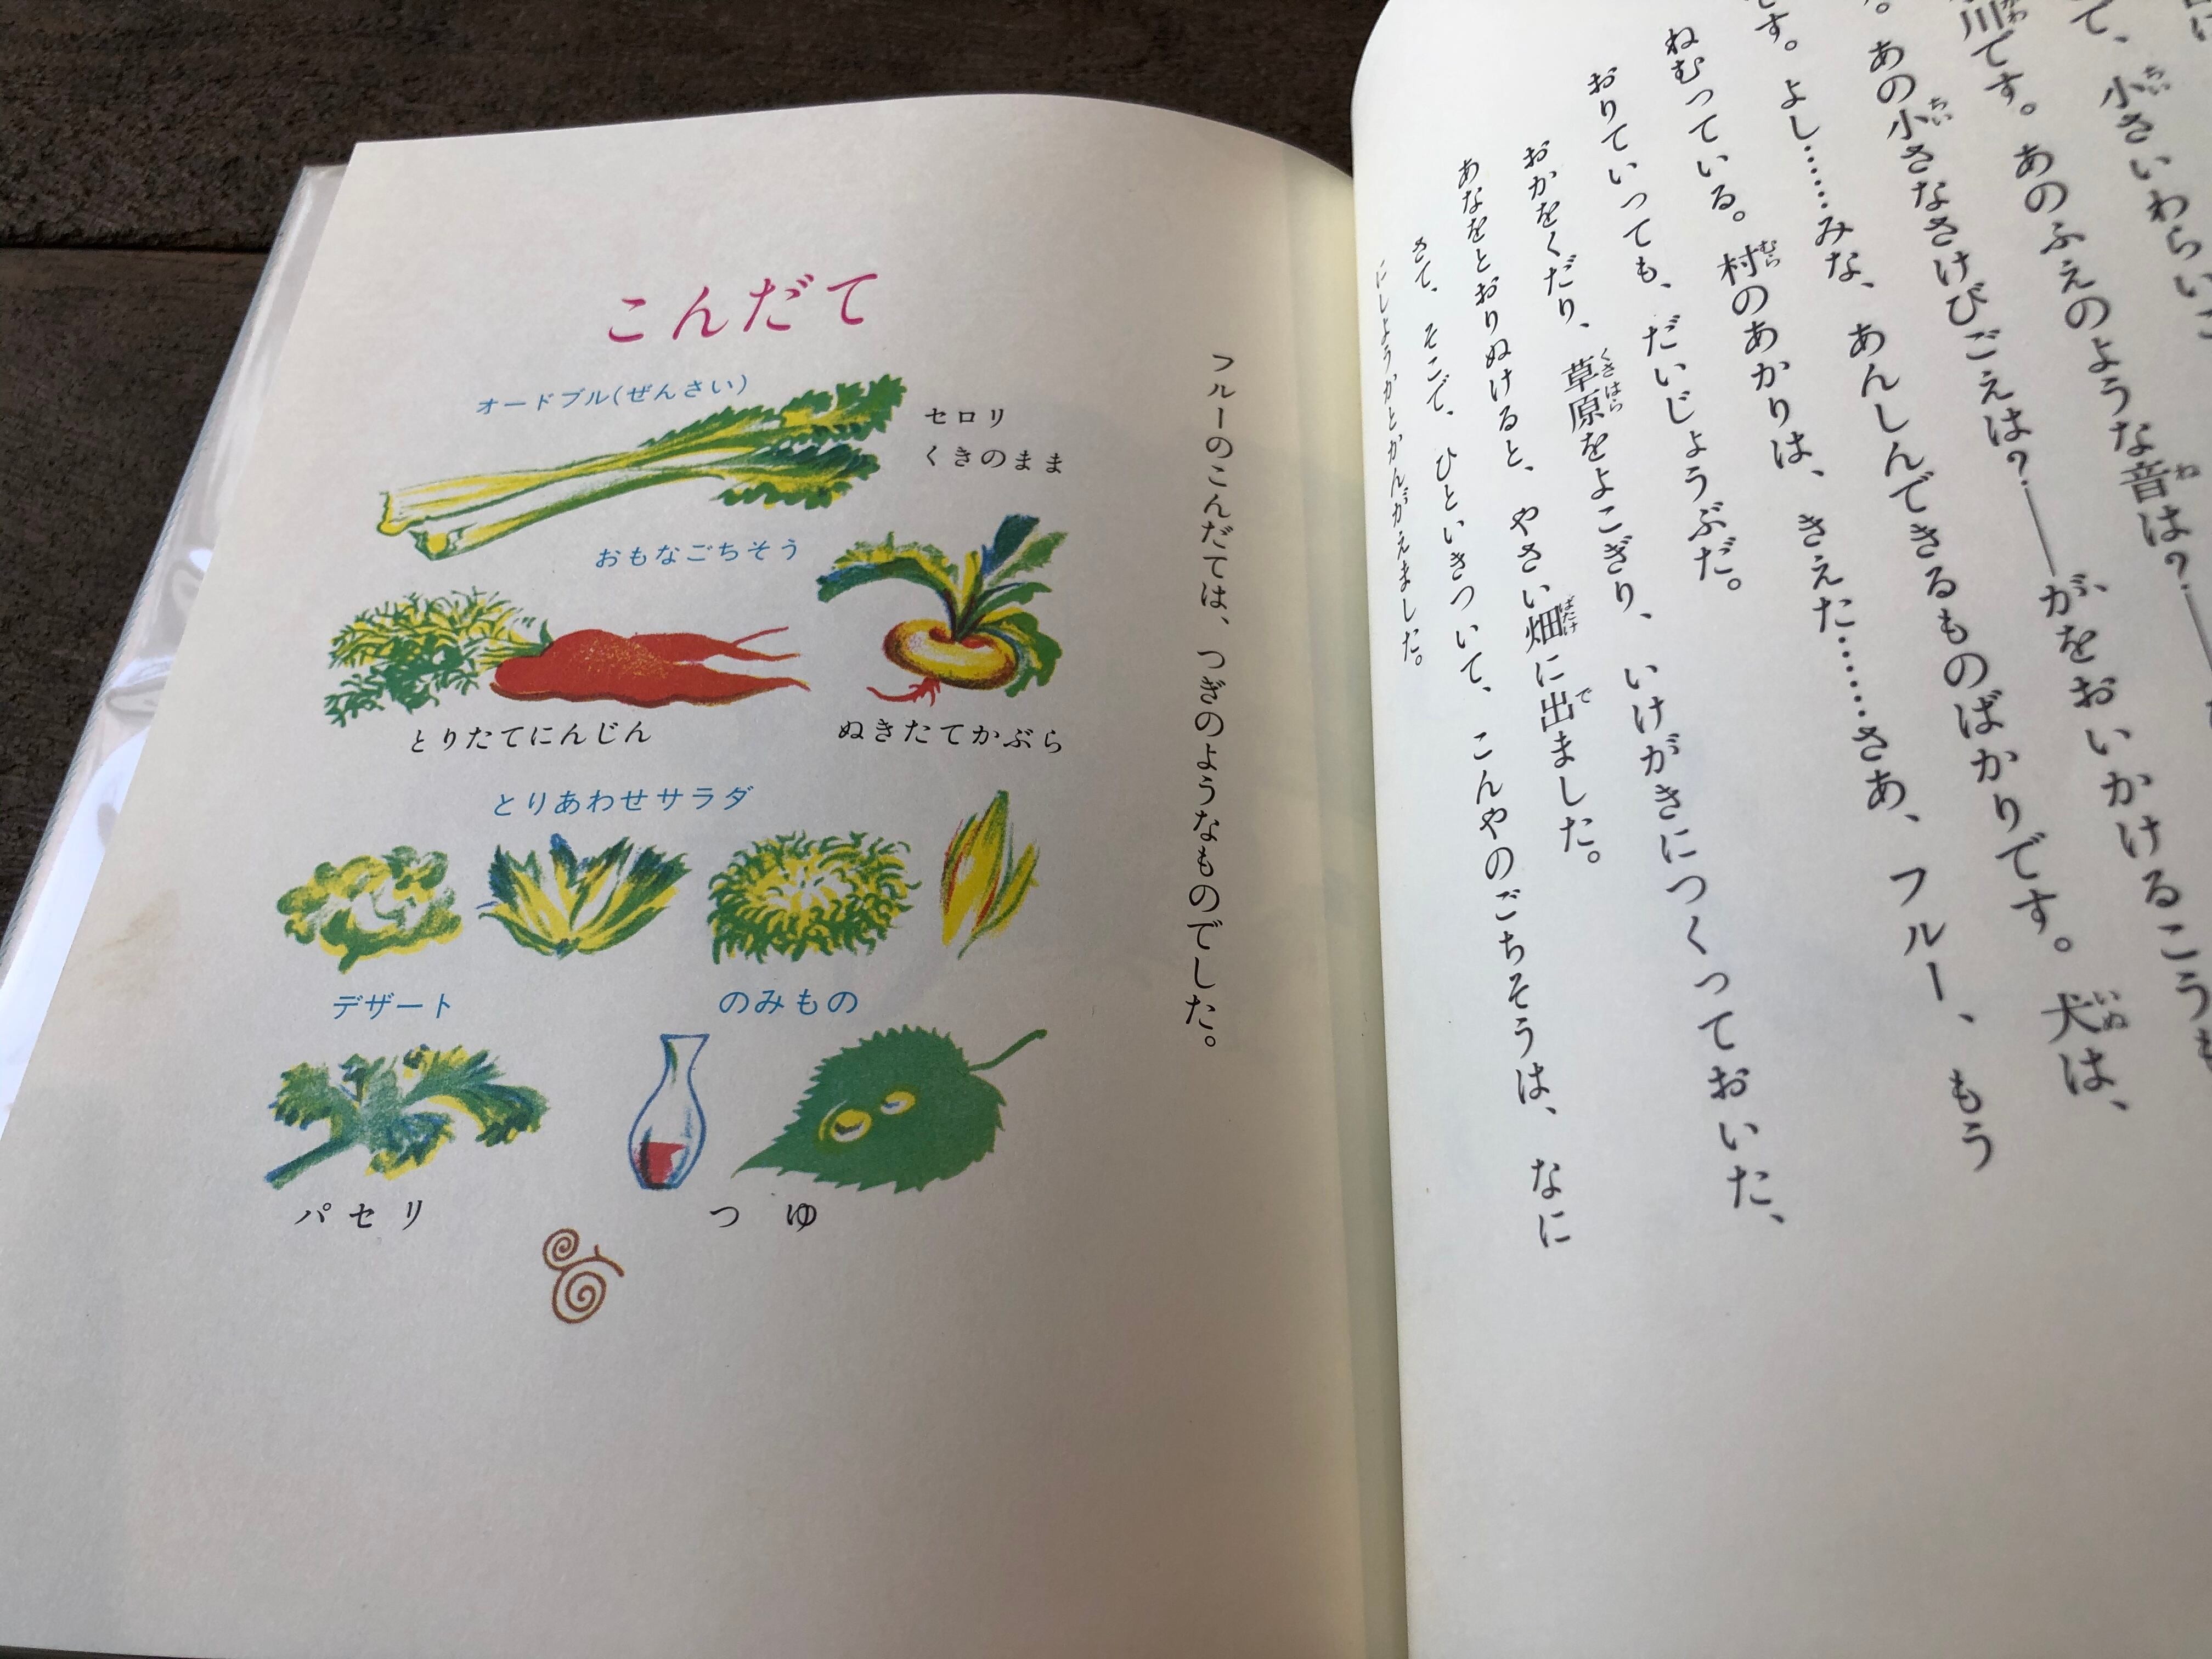 小さいわらい
川です。あのふえのような音は？――
。あの小さなさけびごえは？――が、
がをおいかけるこう
す。よし……みな、あんしんできるものばかりです。犬は、
ねむっている。村のあかりは、きえた……さあ、フルー、もう
おりていっても、だいじょうぶだ。
おかをくだり、草原をよこぎり、いけがきにつくっておいた、
あなをとおりぬけると、やさい畑に出ました。
さて、そこで、ひといきついて、こんやのごちそうは、なに
にしようかとかんがえました。
フルーのこんだては、つぎのようなものでした。
こんだて
オードブル(ぜんさい)
セロリ
くきのまま
おもなごちそう
とりたてにんじん
ぬきたてかぶら
とりあわせサラダ
デザート
のみもの
パセリ
つゆ